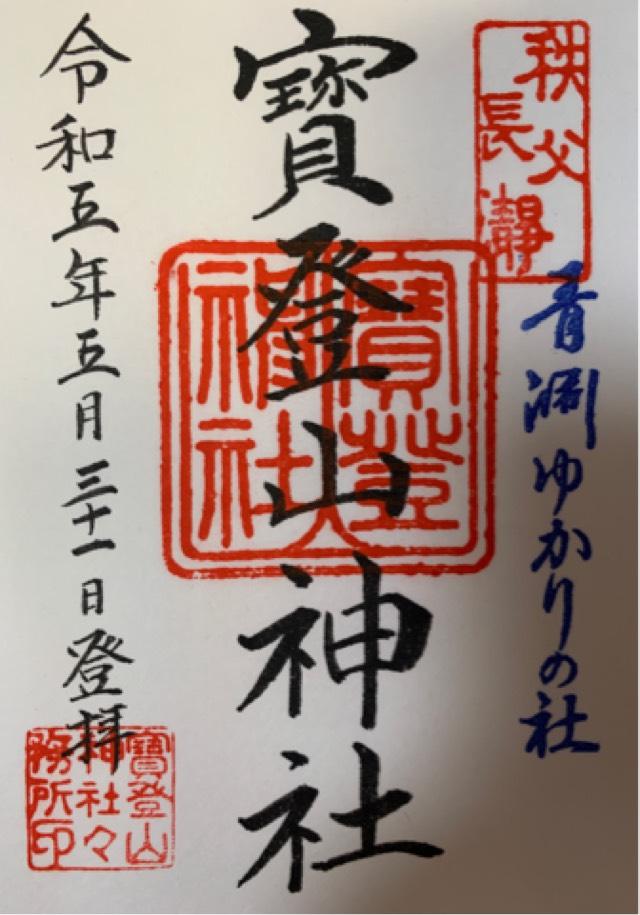 秩父
長瀞
青淵ゆかりの社
寳登山神社
寳登山
神社
令和五年五月三十一日登拝
寳登山
神社々
務所印